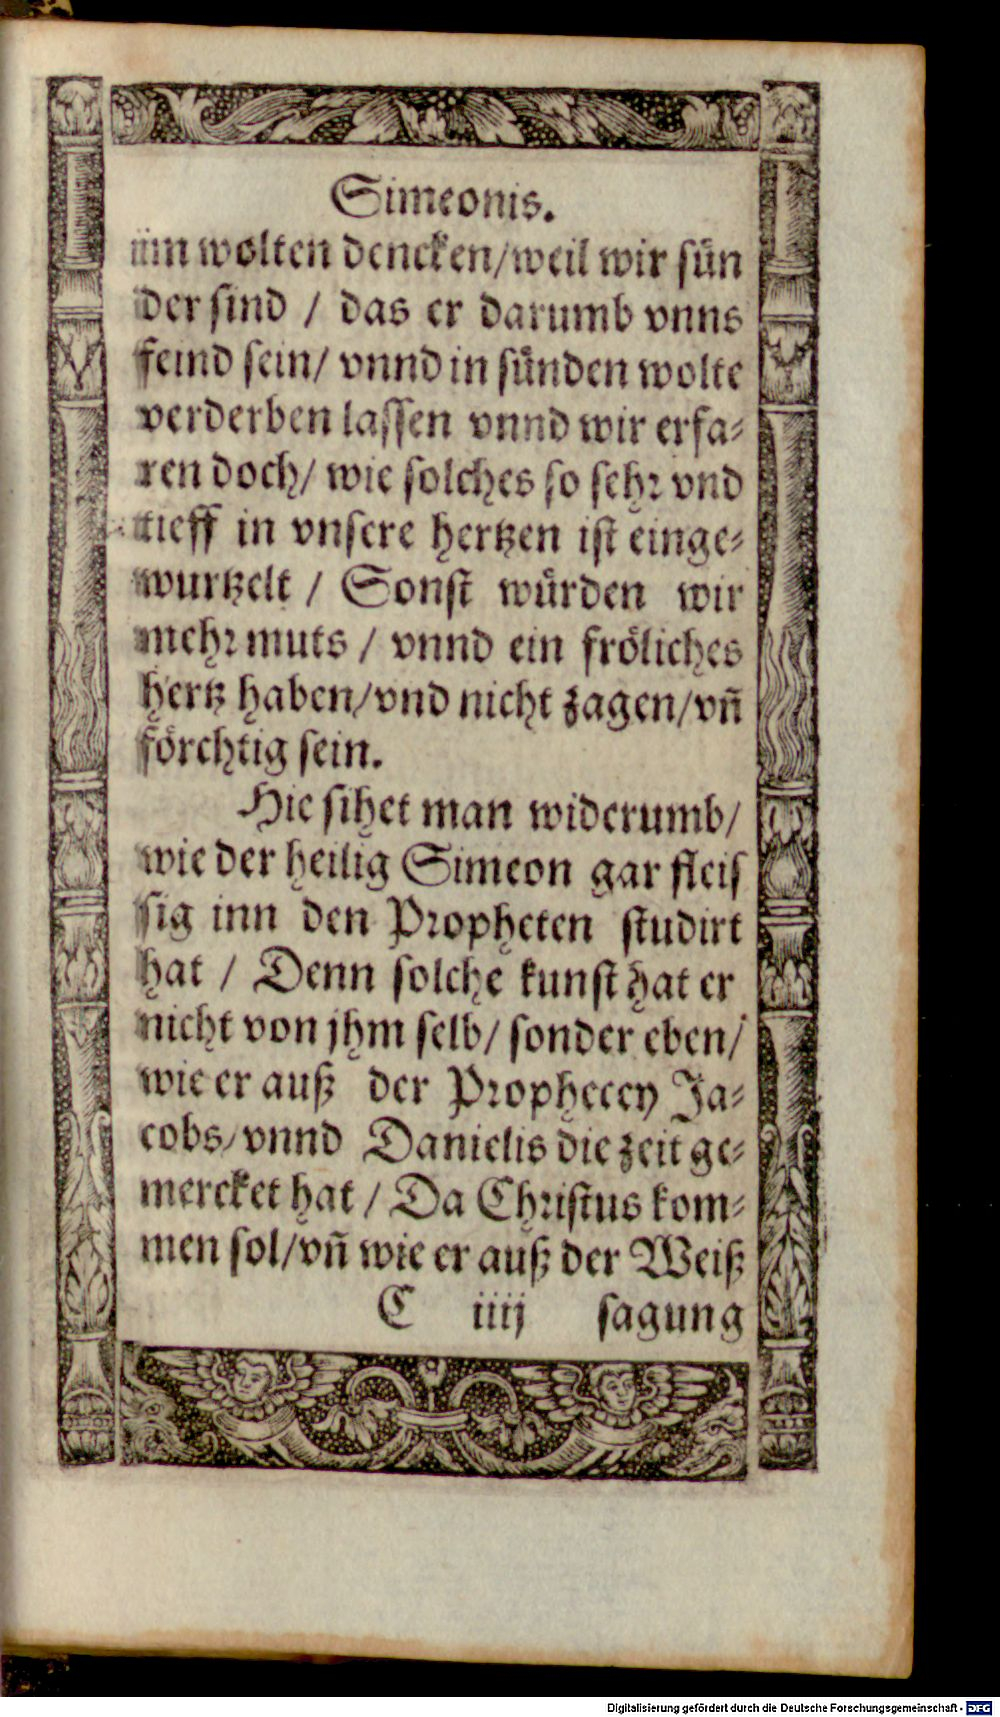 Simeonis.
im wolten dencken/weil wir sün
der sind / das er darumb vnns
feind sein/ vnnd in sünden wolte
verderben lassen vnnd wir erfa-
ren doch/ wie solches so sehr vnd
tieff in vnsere hertzen ist einge-
wurtzelt / Sonst würden wir
mehr muts / vnnd ein fröliches
hertz haben/vnd nicht zagen/vñ
förchtig sein.
Hie sihet man widerumb/
wie der heilig Simeon gar fleis
sig inn den Propheten studirt
hat / Denn solche kunst hat er
nicht von jhm selb/ sonder eben/
wie er auß der Prophecey Ja-
cobs/vnnd Danielis die zeit ge-
mercket hat / Da Christus kom-
men sol/vñ wie er auß der Weiß
C iiij sagung
Digitalisierung gefördert durch die Deutsche Forschungsgemeinschaft - DFG